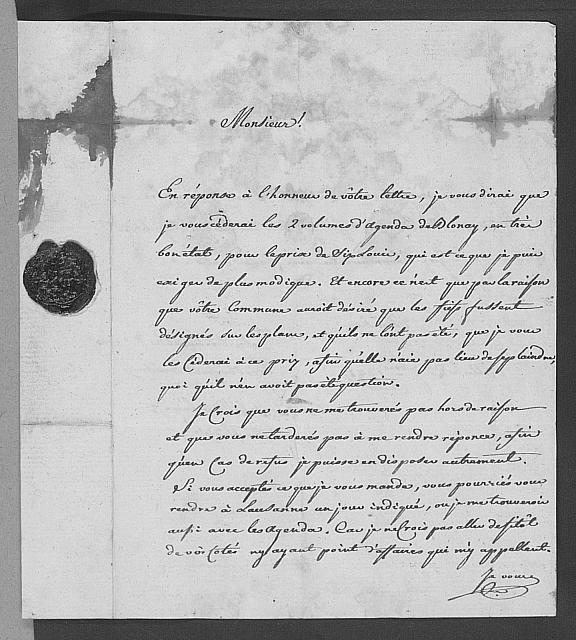 Monsieur!
En réponse à l'honneur de vôtre lettre, je vous dirai que
je vous cèderai les 2 volumes d'Agenda de Blonay, en très
bon état, pour le prix de Six Louis, qui est ce que je puis
exiger de plus modique. Et encore ce n'est que par la raison
que vôtre Commune auroit désiré que les fiefs fussent
désignés sur les plans, et qu'ils ne l'ont pas été, que je vous
les Céderai à ce prix, afin qu'elle n'aie pas lieu de se plaindre,
quoi qu'il n'en avoit pas été question.
Je Crois que vous ne me trouverés pas hors de raison
et que vous ne tarderés pas à me rendre réponce, afin
qu'en Cas de refus je puisse en disposer autrement.
Si vous acceptés ce que je vous mande, vous pourriés vous
rendre à Lausanne un jour indiqué, ou je me trouverois
aussi avec les Agenda. Car je ne Crois pas aller de sitôt
de vos Cotés n'y ayant point d'affaires qui m'y appellent.
Je vous